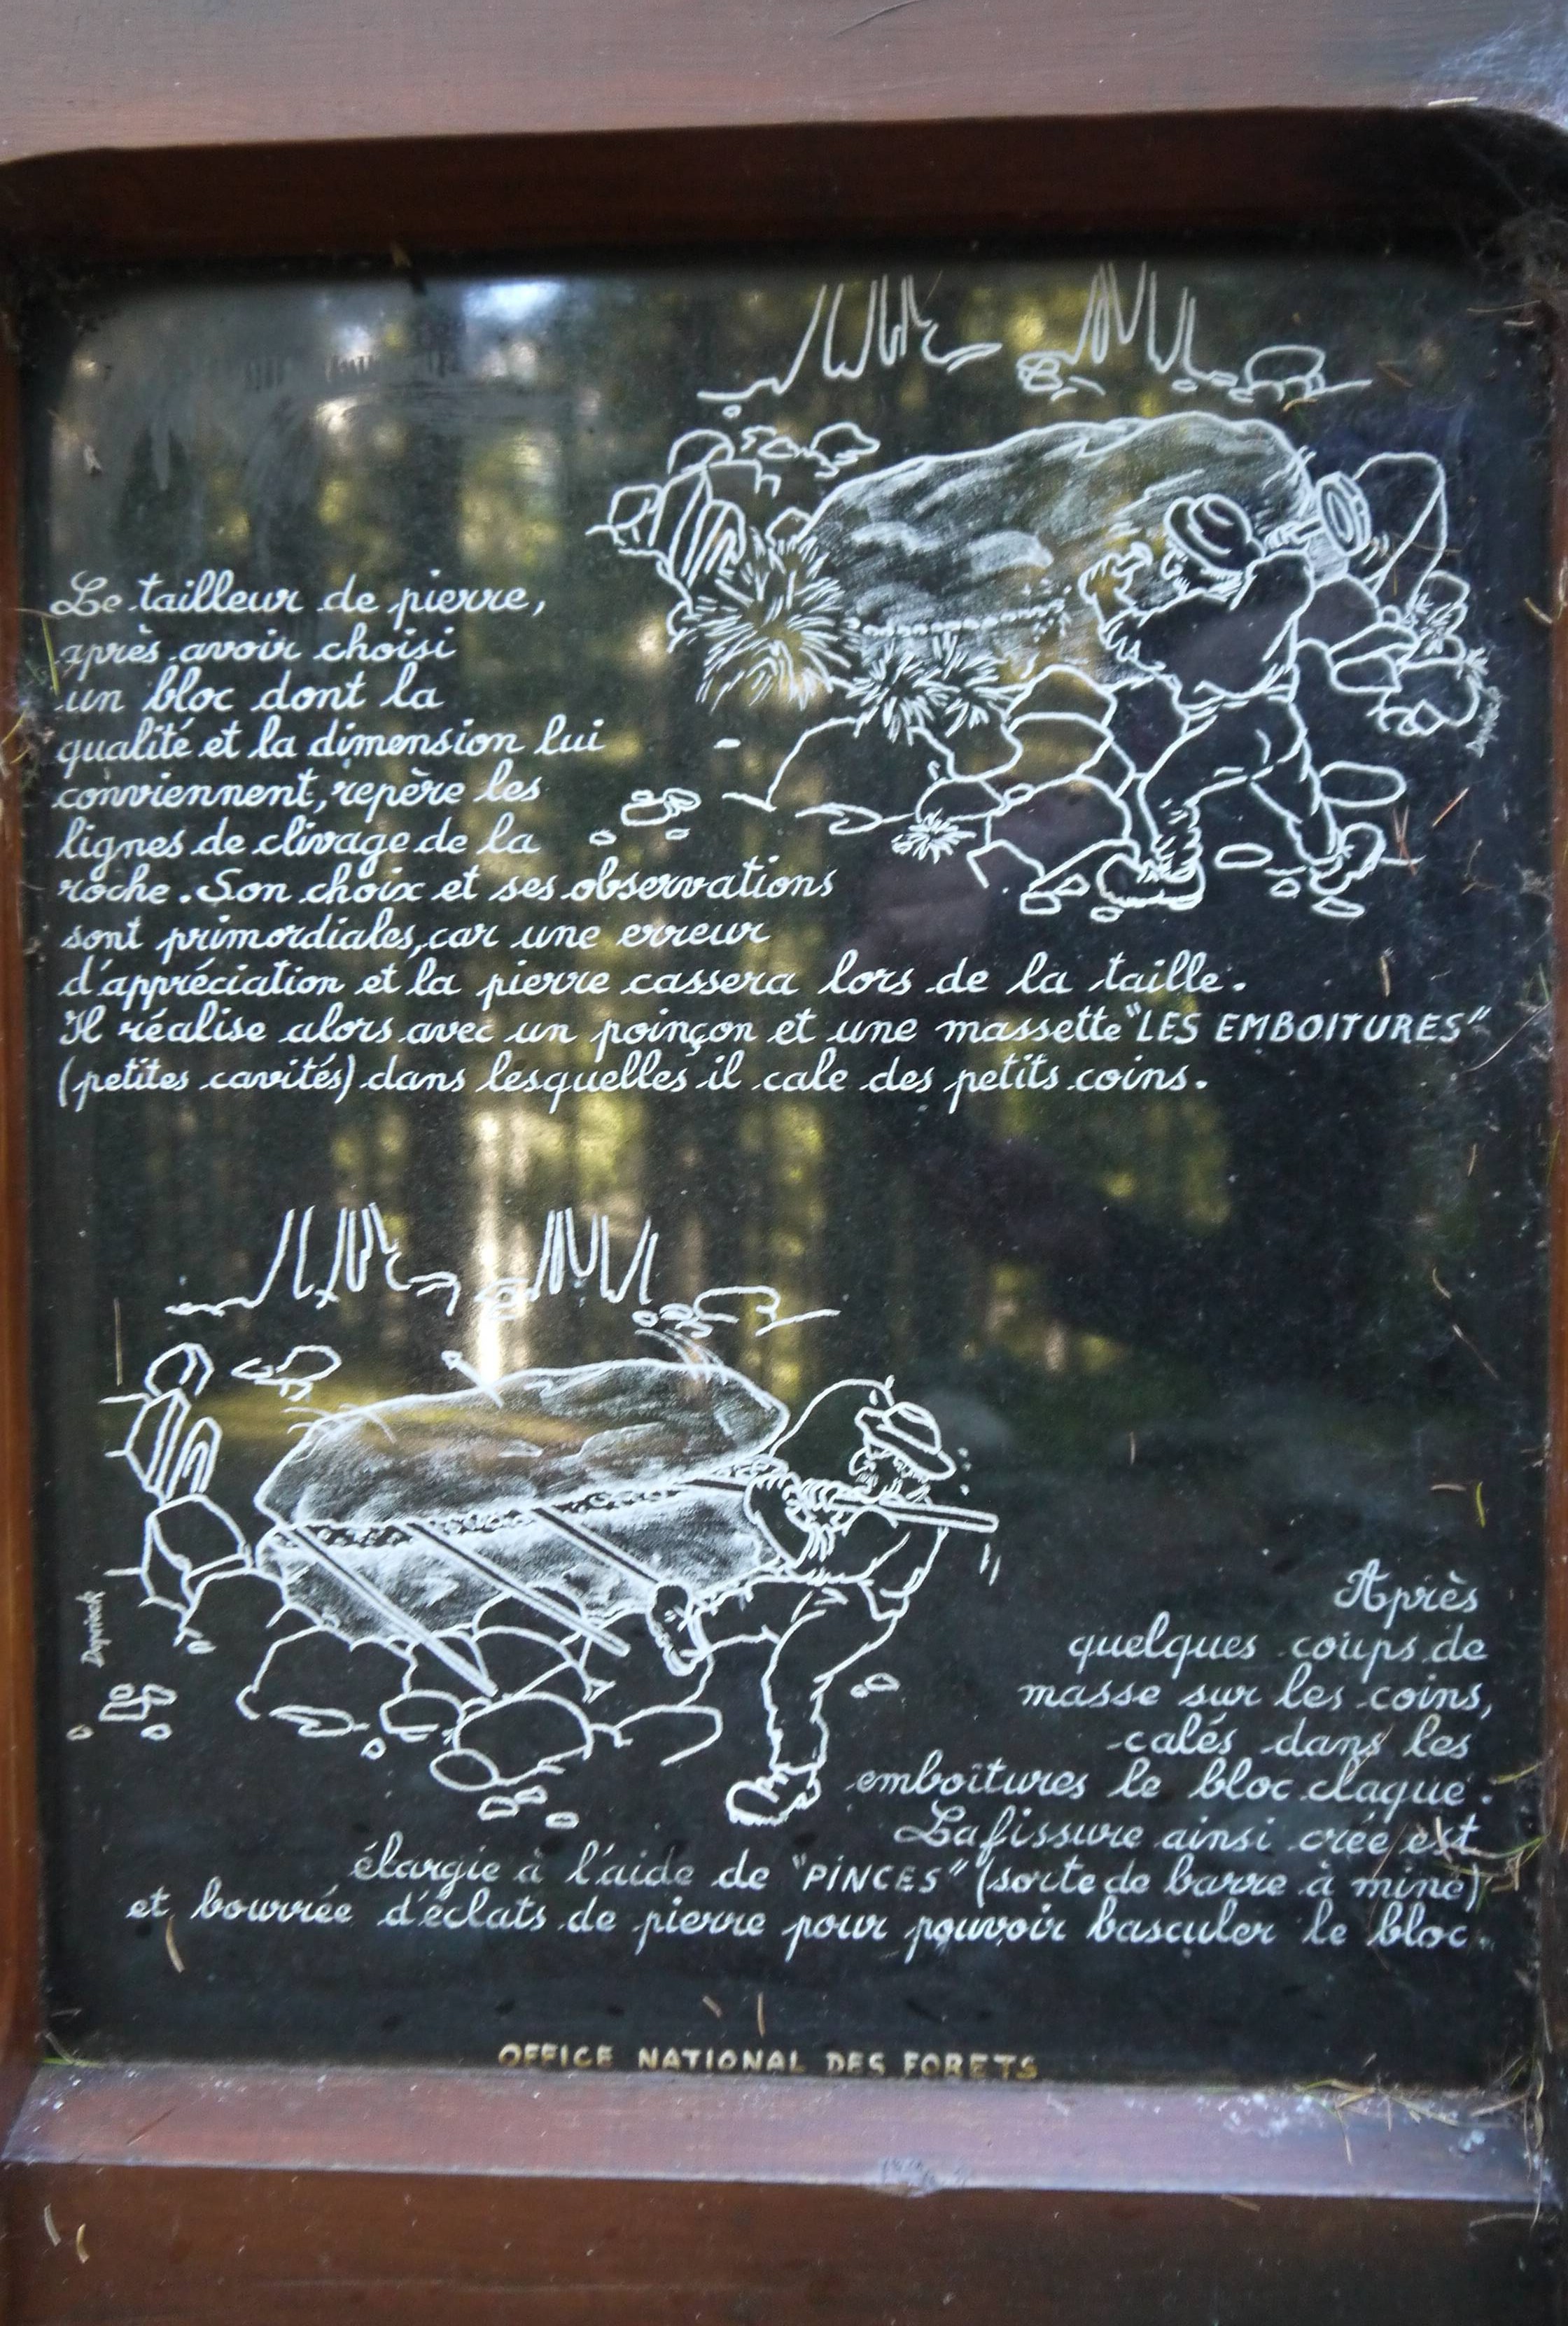 Le tailleur de pierre,
après avoir choisi
un bloc dont la
qualité et la dimension lui
conviennent, repère les
lignes de clivage de la
roche. Son choix et ses observations
sont primordiales, car une erreur
d'appréciation et la pierre cassera lors de la taille.
Il réalise alors avec un poinçon et une massette "LES EMBOITURES"
(petites cavités) dans lesquelles il cale des petits coins.
Après
quelques coups de
masse sur les coins,
calés dans les
emboîtures le bloc claque.
La fissure ainsi crée est
élargie à l'aide de "PINCES" (sorte de barre à mine)
et bourrée d'éclats de pierre pour pouvoir basculer le bloc.
OFFICE NATIONAL DES FORETS